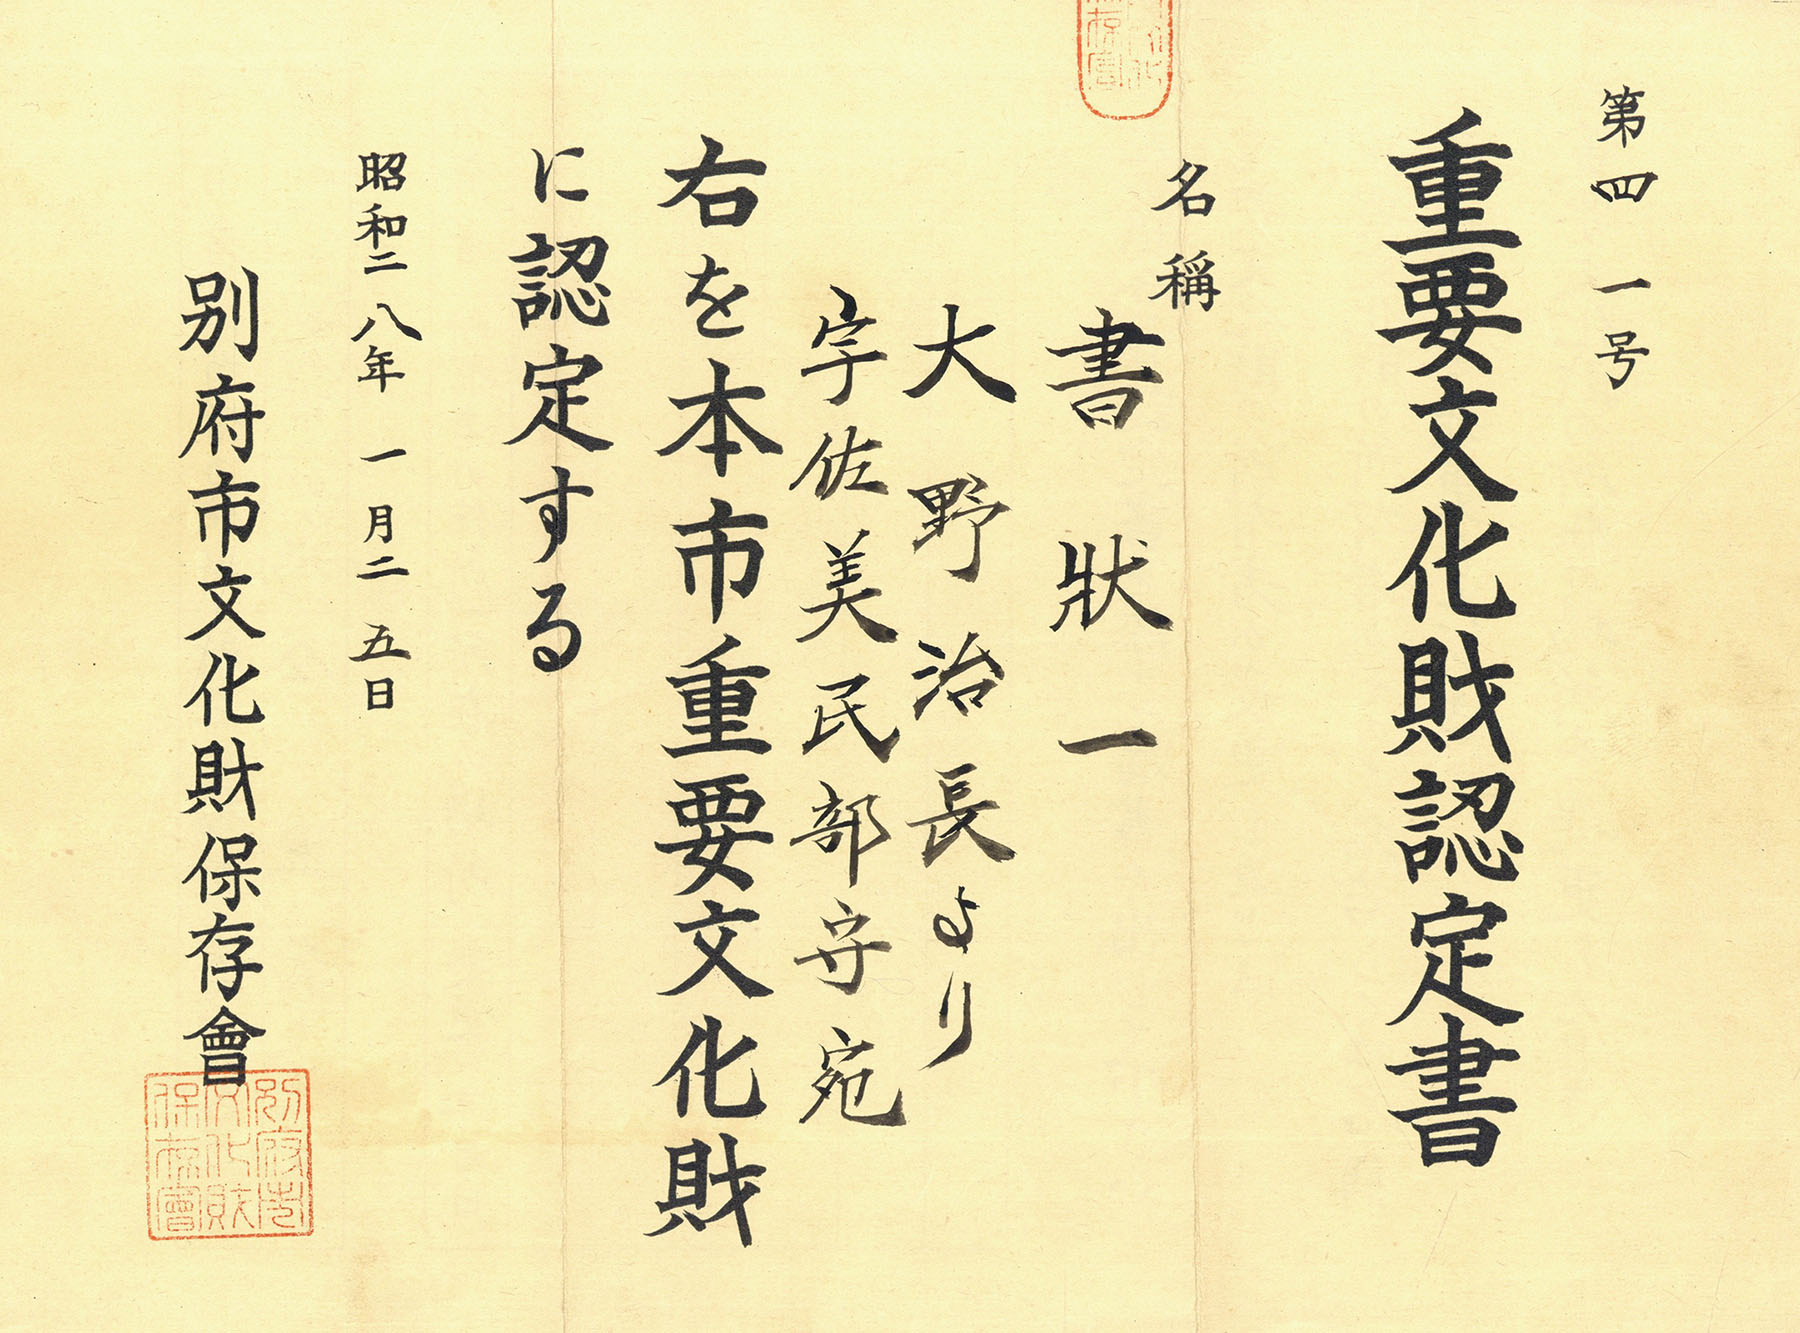 第四一号
重要文化財認定書
名稱
書狀一
大野治長より
宇佐美民部守宛
右を本市重要文化財
に認定する
昭和二八年一月二五日
別府市文化財保存會
別府市
文化財
保存會